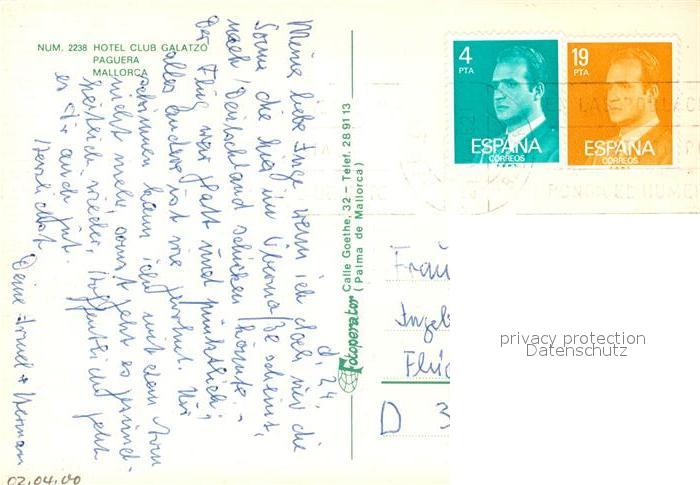 NUM. 2238 HOTEL CLUB GALATZO
PAGUERA
MALLORCA
d. 24.
Meine liebe Inge, wenn ich doch nur die
Sonne, die hier im Übermaße scheint,
nach Deutschland schicken könnte.
Der Flug war glatt und pünktlich;
alles andere ist wie gewohnt. Nur
schwimmen kann ich mit dem Arm
nicht mehr, sonst geht es gesund-
heitlich wieder. Hoffentlich geht
es Dir auch gut.
Herzlichst
Deine Irmel + Herman
Fotoperator Calle Goethe, 32 – Telef. 28 91 13
(Palma de Mallorca)
4
PTA
ESPAÑA
CORREOS
19
PTA
ESPAÑA
CORREOS
PONGA EL NUMER
Frau
Ingeb
D 3
privacy protection
Datenschutz
02.04.00